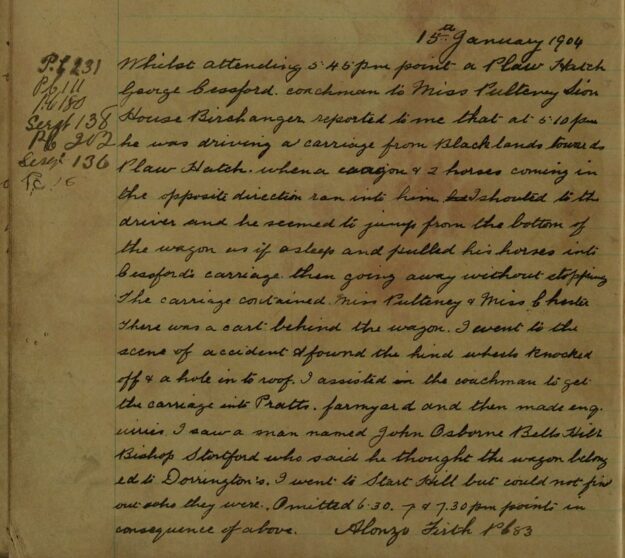 15th January 1904
P.C 231
P.C 111
P.C 180
Sergt 138
P.C 202
Sergt 136
P.C. 16
Whilst attending 5.45pm point a Plaw Hatch
George Cessford. coachman to Miss Pulteney Sion
House Birchanger reported to me that at 5.10pm
he was driving a carriage from Blacklands towards
Plaw Hatch. when a wagon & 2 horses coming in
the opposite direction ran into him. he I shouted to the
driver and he seemed to jump from the bottom of
the wagon as if asleep and pulled his horses into
Cessford's carriage then going away without stopping
The carriage contained Miss Pulteney & Miss Chester
There was a cart behind the wagon. I went to the
scene of accident & found the hind wheels knocked
off & a hole in to roof. I assisted in the coachman to get
the carriage into Pratts. farmyard and then made enq-
uiries. I saw a man named John Osborne Bells Hill
Bishop Stortford who said he thought the wagon belong
ed to Dorrington's. I went to Start Hill but could not fin
out who they were. Omitted 6.30. 7 & 7.30pm points in
consequence of above. Alonzo Firth P.C 83